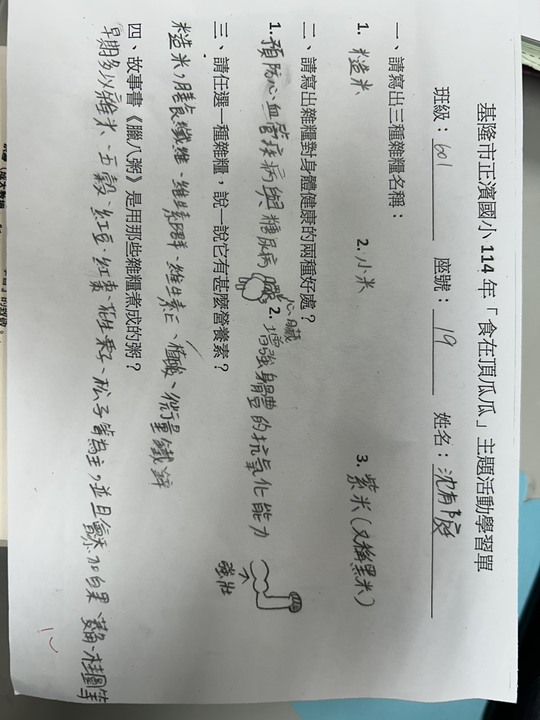 基隆市正濱國小 114 年「食在頂瓜瓜」主題活動學習單
班級：601 座號：19 姓名：沈
一、請寫出三種雜糧名稱：
1. 糙米 2. 小米 3. 紫米(又稱黑米)
二、請寫出雜糧對身體健康的兩種好處？
1. 預防心血管疾病與糖尿病 心臟 2. 增強身體的抗氧化能力 強壯
三、請任選一種雜糧，說一說它有甚麼營養素？
糙米，膳食纖維、維生素B群、維生素E、植酸、微量鐵鋅
四、故事書《臘八粥》是用那些雜糧煮成的粥？
早期多以糯米、五穀、紅豆、紅棗、花生、松子皆為主，並且會添加白果、桂圓等